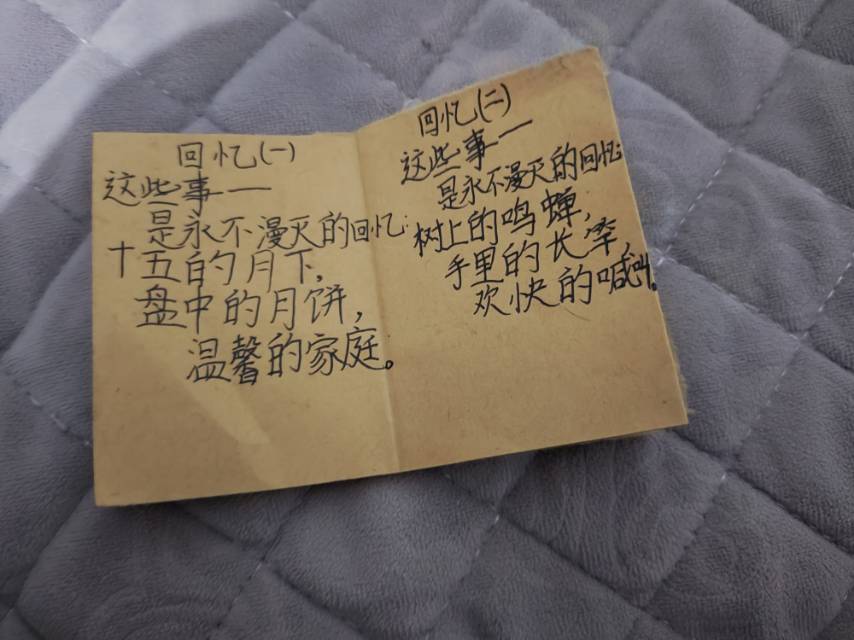 回忆(一)
这些事一
是永不漫灭的回忆:
十五的月下,
盘中的月饼,
温馨的家庭。
回忆(二)
这些事一
是永不漫灭的回忆:
树上的鸣蝉,
手里的长竿,
欢快的喊叫。